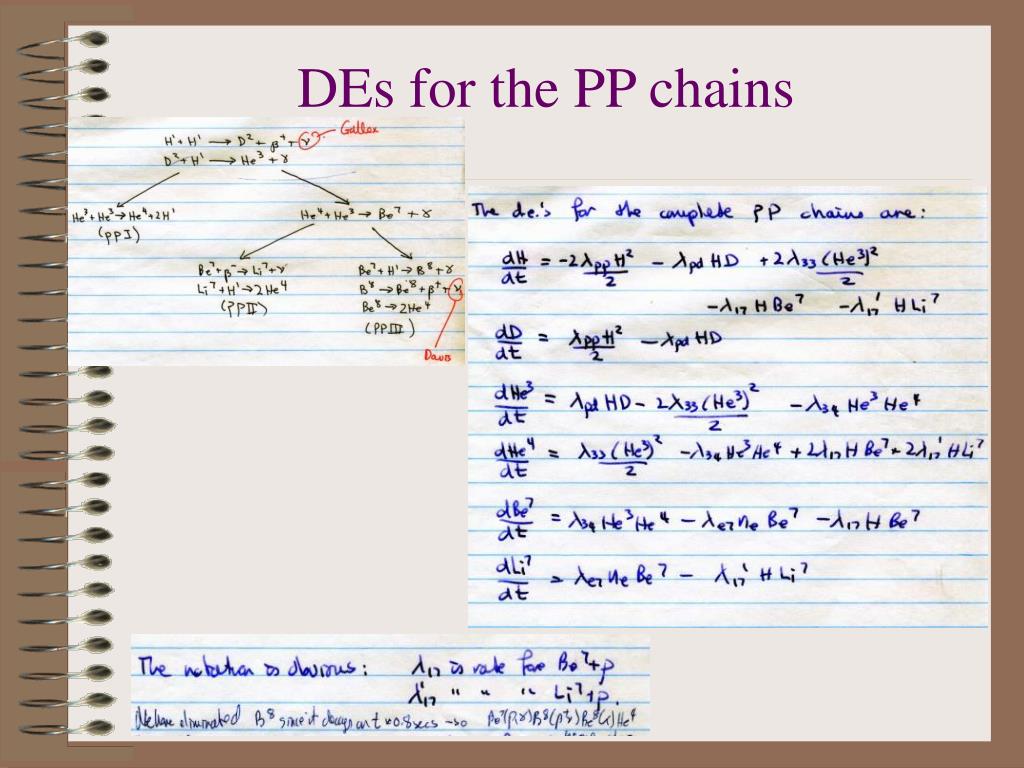 DEs for the PP chains
H¹ + H¹ → D² + β⁺ + ν Gallex
D² + H¹ → He³ + γ
He³ + He³ → He⁴ + 2H¹
(PPI)
He⁴ + He³ → Be⁷ + γ
Be⁷ + β⁻ → Li⁷ + ν
Li⁷ + H¹ → 2He⁴
(PPII)
Be⁷ + H¹ → B⁸ + γ
B⁸ → Be⁸ + β⁺ + ν
Be⁸ → 2He⁴
(PPIII)
Davis
The d.e.'s for the complete PP chains are:
dH/dt = -2 λpp H²/2 - λpd HD + 2 λ33 (He³)²/2
- λ17 H Be⁷ - λ17' H Li⁷
dD/dt = λpp H²/2 - λpd HD
dHe³/dt = λpd HD - 2 λ33 (He³)²/2 - λ34 He³ He⁴
dHe⁴/dt = λ33 (He³)²/2 - λ34 He³ He⁴ + 2λ17 H Be⁷ + 2λ17' H Li⁷
dBe⁷/dt = λ34 He³ He⁴ - λe7 ne Be⁷ - λ17 H Be⁷
dLi⁷/dt = λe7 ne Be⁷ - λ17' H Li⁷
The notation is obvious: λ17 is rate for Be⁷+p
λ'17 " " " Li⁷+p.
We have eliminated B⁸ since it decays in t ~ 0.8 secs → so Be⁷(p,γ)B⁸(β⁺ν)Be⁸(α)He⁴